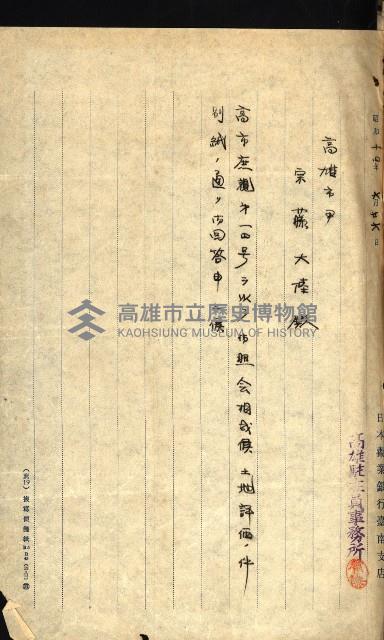 昭和十四年 六月廿六日
日本勧業銀行臺南支店
高雄駐在員事務所
高雄市尹
宗藤大陸殿
高市庶觀第一四号ヲ以テ御照会相成候土地評価ノ件
別紙ノ通リ御回答申上候
高雄市立歷史博物館
KAOHSIUNG MUSEUM OF HISTORY